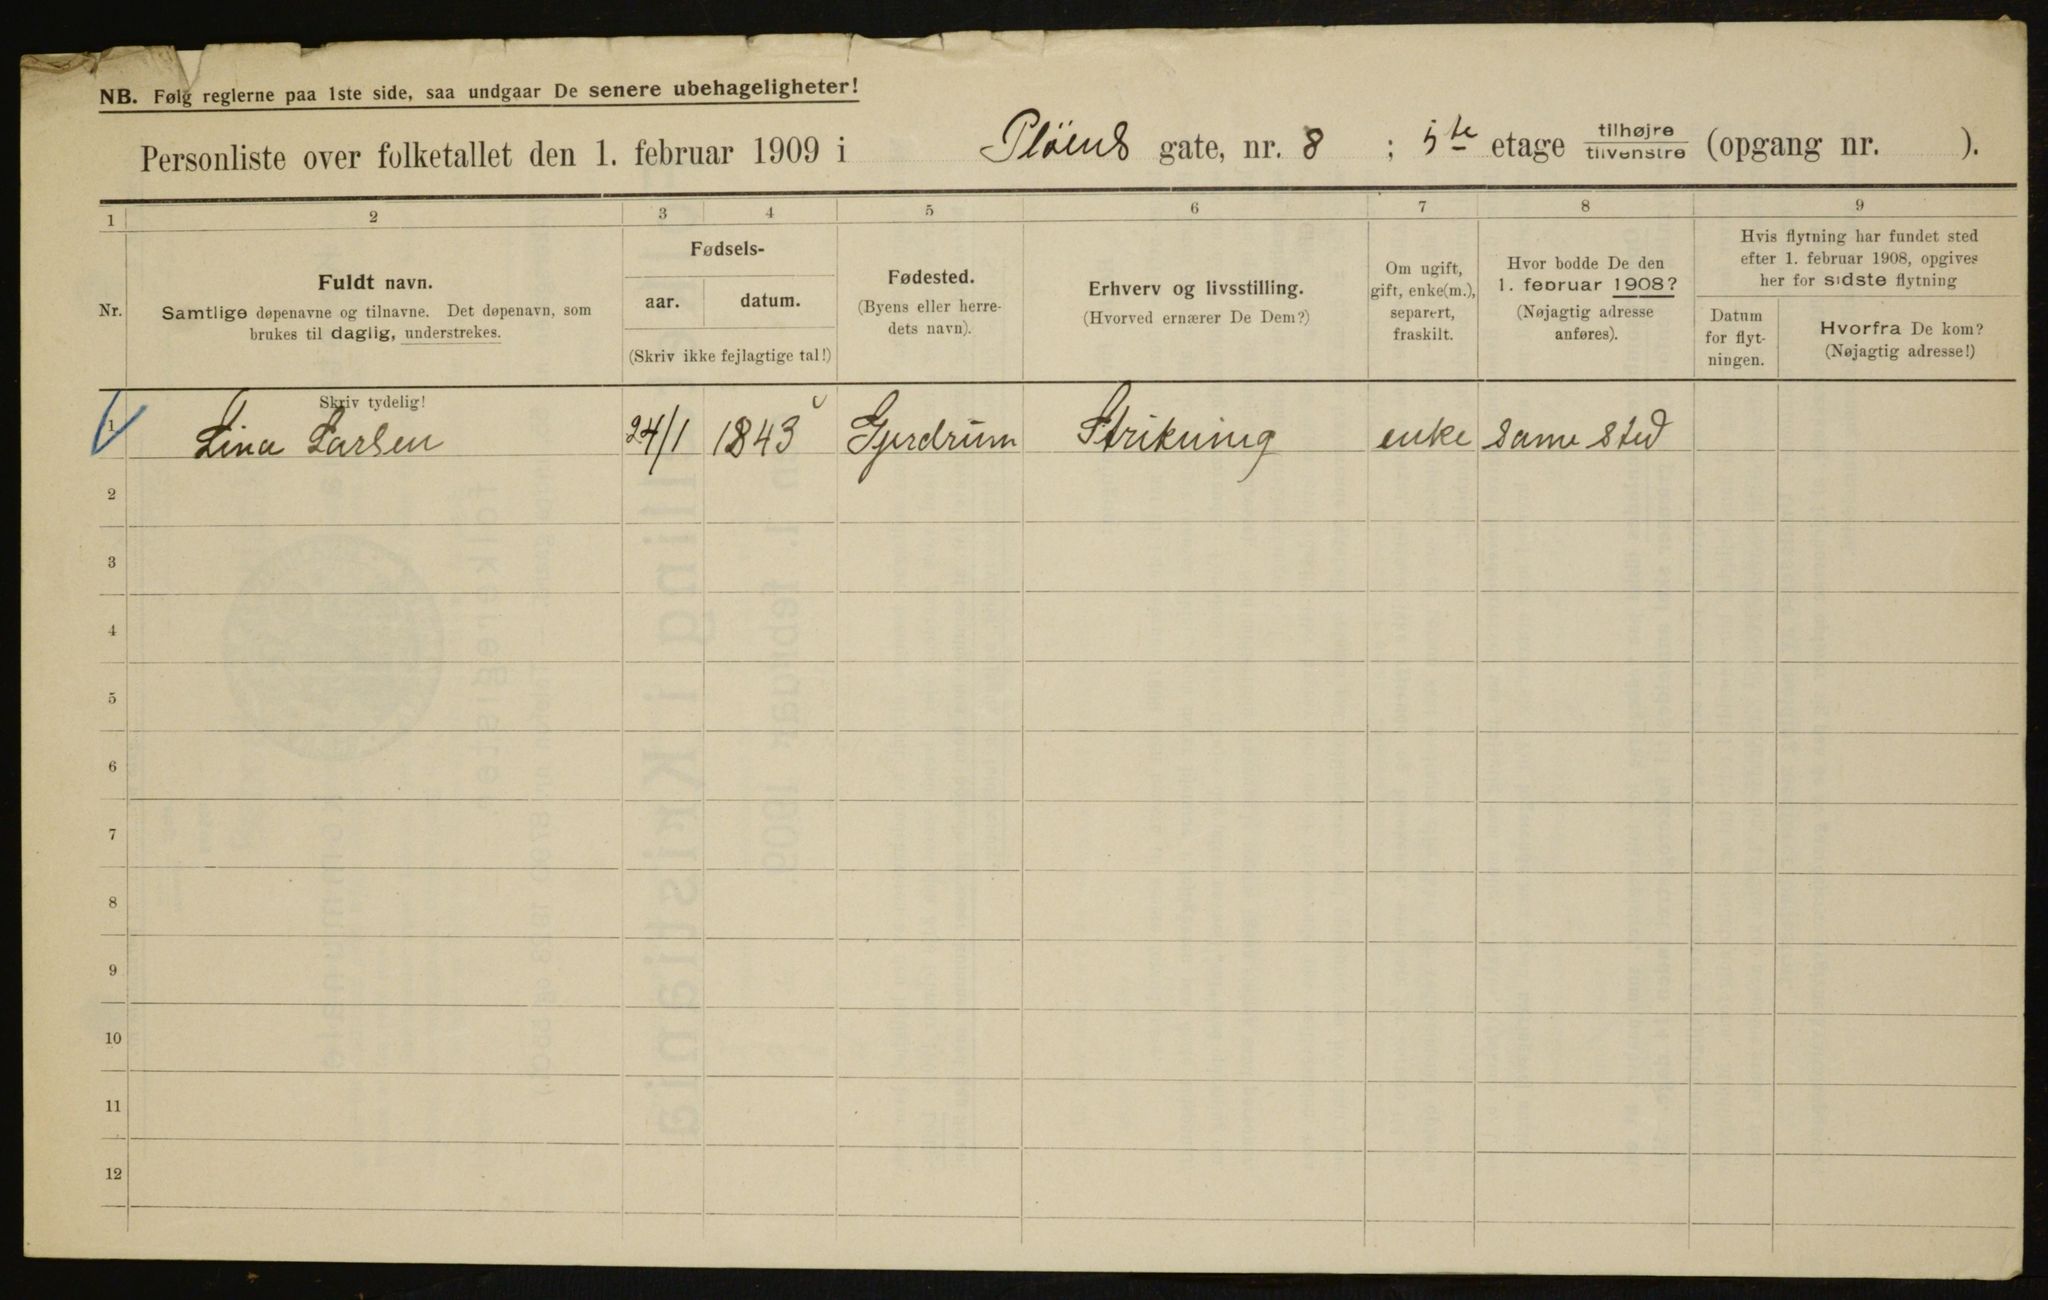 NB. Følg reglerne paa 1ste side, saa undgaar De senere ubehageligheter!
Personliste over folketallet den 1. februar 1909 i Pløens gate, nr. 8 ; 5te etage tilhøjre/tilvenstre (opgang nr. ).
1 2 3 4 5 6 7 8 9
Nr.
Fuldt navn.
Samtlige døpenavne og tilnavne. Det døpenavn, som
brukes til daglig, understrekes.
Fødsels-
aar. datum.
(Skriv ikke fejlagtige tal!)
Fødested.
(Byens eller herre-
dets navn).
Erhverv og livsstilling.
(Hvorved ernærer De Dem?)
Om ugift,
gift, enke(m.),
separert,
fraskilt.
Hvor bodde De den
1. februar 1908?
(Nøjagtig adresse
anføres).
Hvis flytning har fundet sted
efter 1. februar 1908, opgives
her for sidste flytning
Datum
for flyt-
ningen.
Hvorfra De kom?
(Nøjagtig adresse!)
Skriv tydelig!
1 Lina Larsen 24/1 1843 Gjerdrum Strikning enke same sted
2
3
4
5
6
7
8
9
10
11
12